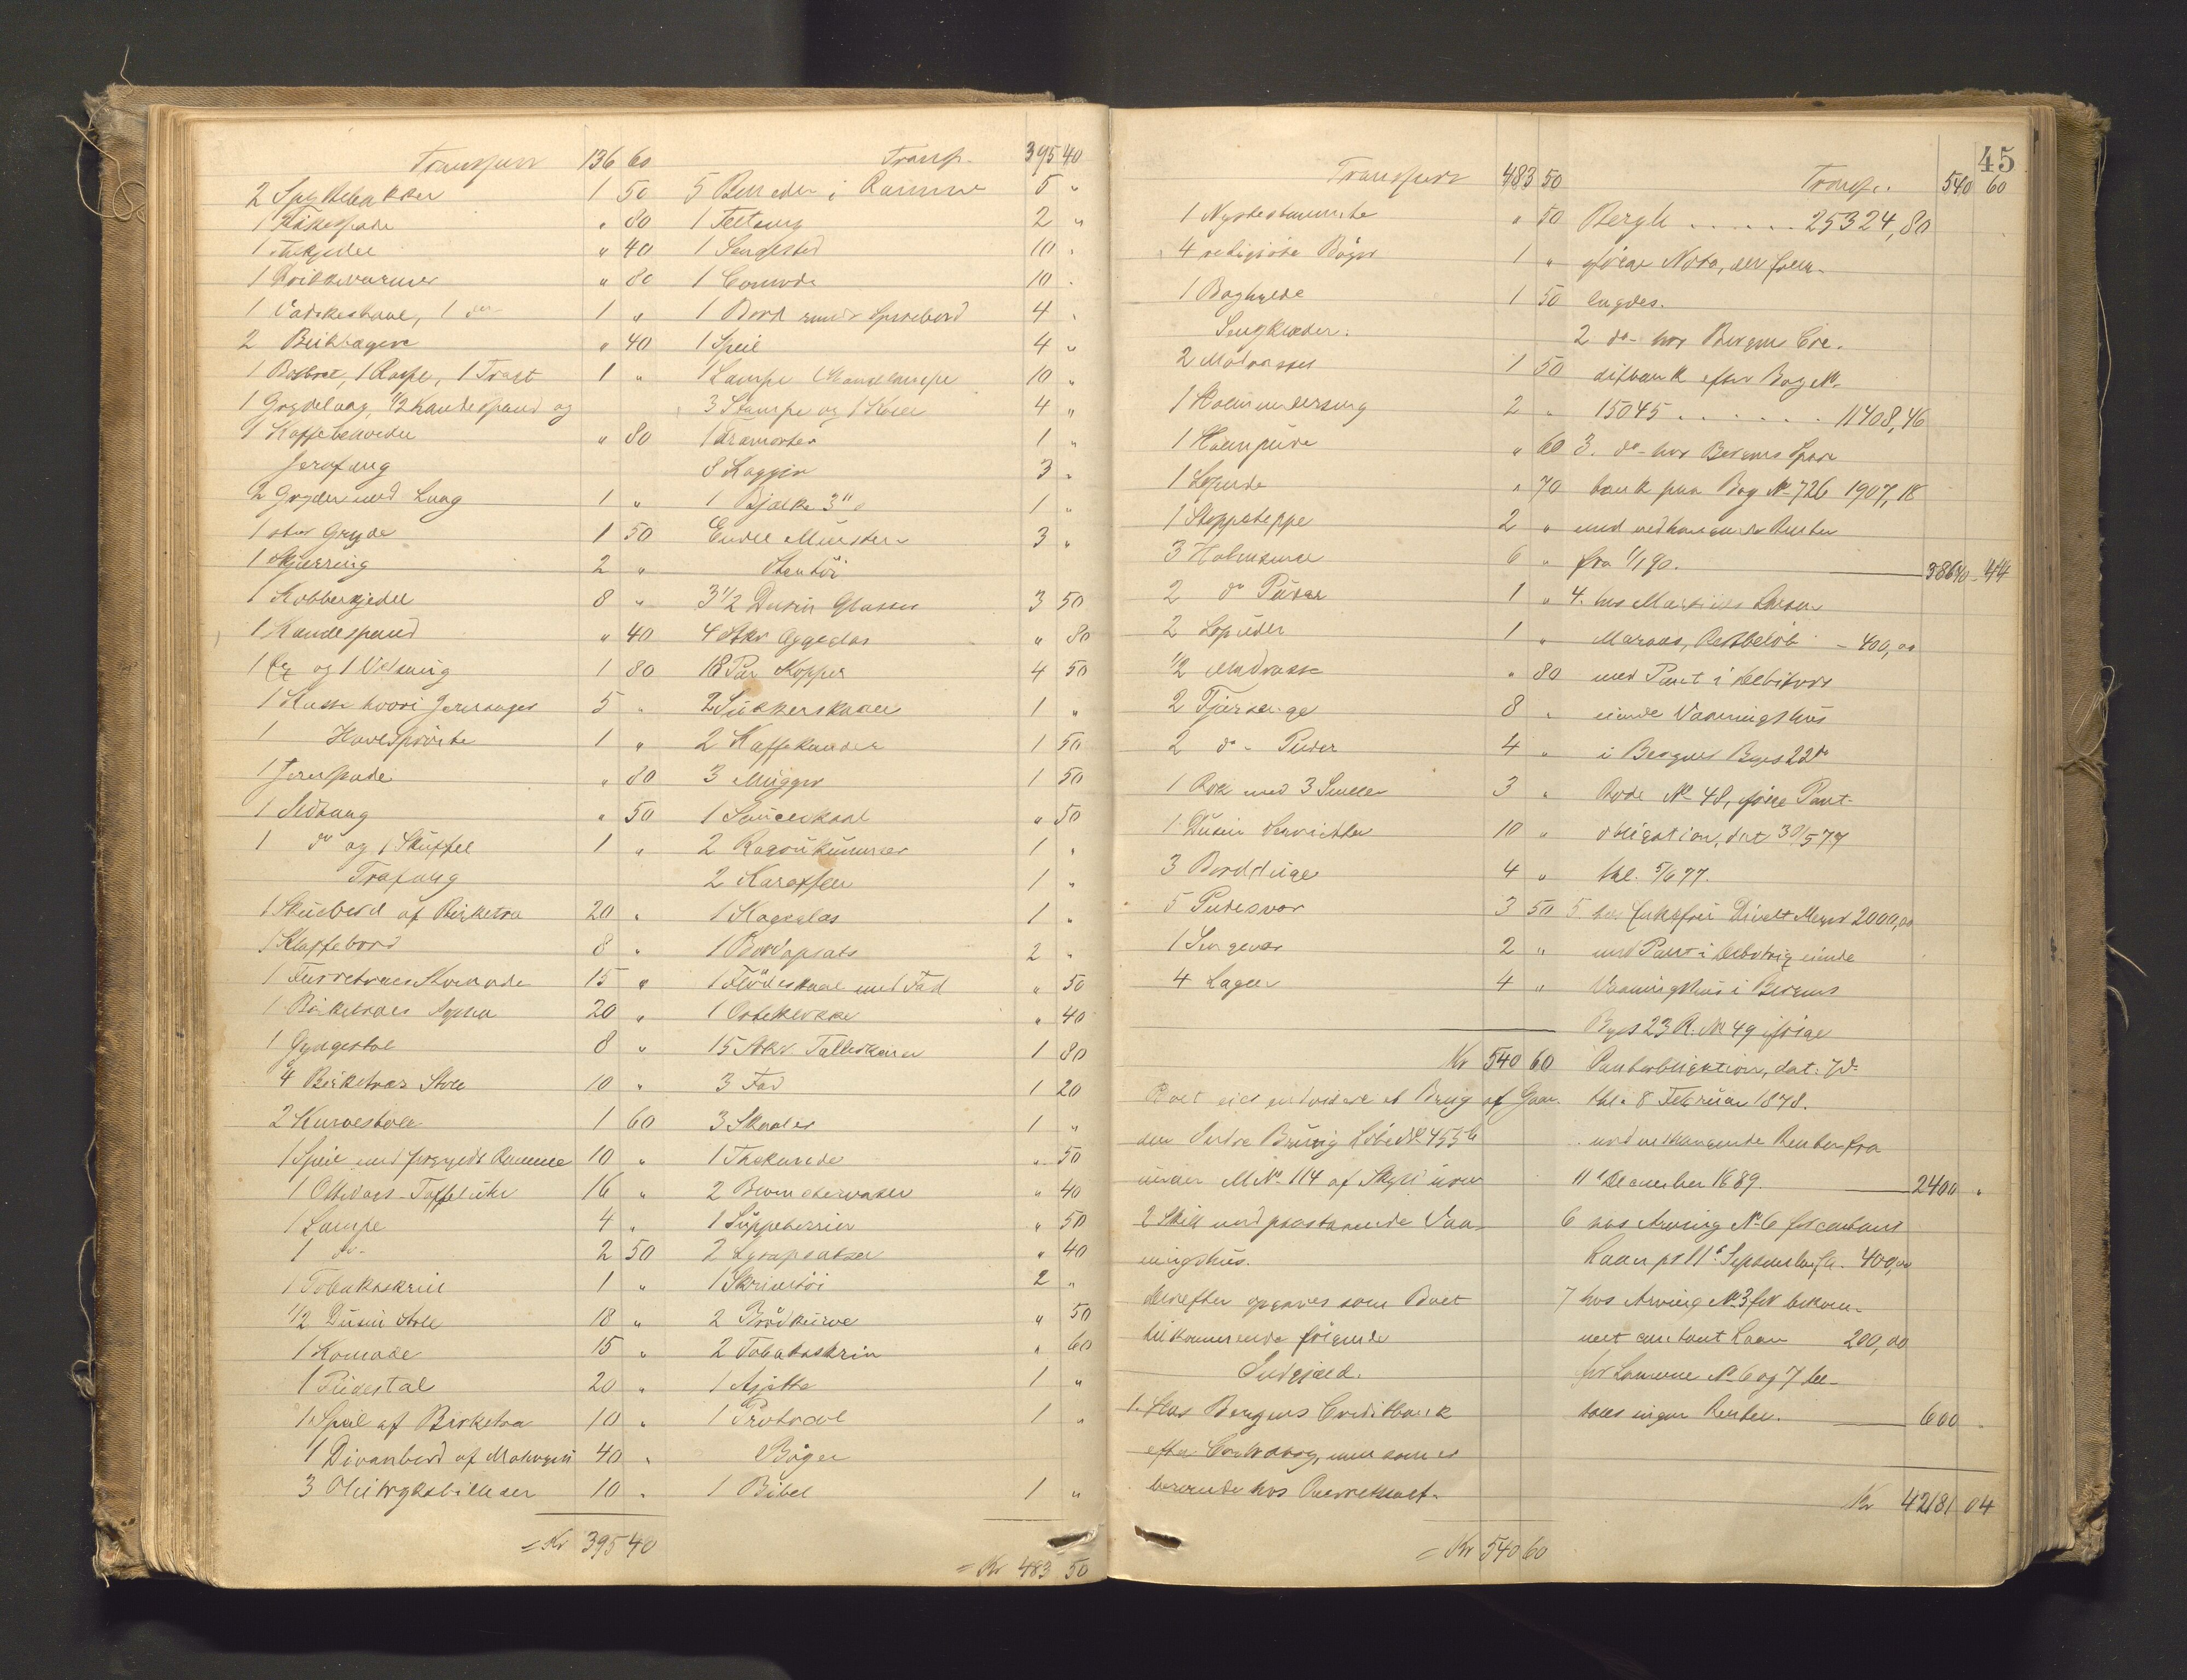 Transport 136 60
2 Spyttebakker 1 50
1 Fiskespade " 80
1 Thekjedel " 40
1 " 80
1 Vadskeskaal, 1 do 1 "
2 " 40
1 1 Raspe, 1 Tragt 1 "
1 1/2 Kandespand og
1 Kaffe " 80
Jernfang
2 Gryder med Laag 1 "
1 stor Gryde 1 50
1 2 "
1 Kobberkjedel 8 "
1 Kandespand " 40
1 og 1 1 80
1 Kasse hvori 5 "
1 Havesprøite 1 "
1 Jernspade " 80
1 Ildtang " 50
1 do og 1 Skuffel 1 "
Træfang
1 af Birketræ 20 "
1 Klaffebord 8 "
1 Furretræes Komode 15 "
1 Birketræes 20 "
1 Gyngestol 8 "
4 Birketræs Stole 10 "
2 Kurvestole 1 60
1 Speil med forgyldt Ramme 10 "
1 Ottedags Taffeluhr 16 "
1 Lampe 4 "
1 do 2 50
1 Tobaksskrin 1 "
1/2 Dusin Stole 18 "
1 Komode 15 "
1 Pidestal 20 "
1 Speil af Birketræ 10 "
1 Divanbord af Mahogni 40 "
3 Olietryksbilleder 10 "
= Kr 395 40
Transp. 395 40
5 Billeder i Ramme 5 "
1 2 "
1 Sengested 10 "
1 Comode 10 "
1 Bord 4 "
1 Speil 4 "
1 Lampe 10 "
3 Stampe og 1 4 "
1 1 "
8 Lagger 3 "
1 Bjælke 3" 1 "
Endel 3 "
Stentøi
3 1/2 Dusin Glasser 3 50
4 Stkr Æggeglas " 80
18 Par Kopper 4 50
2 Sukkerskaaler 1 "
2 Kaffekander 1 50
3 Mugger 1 50
1 Sauceskaal " 50
2 Ragoukummer 1 "
2 Karafler 1 "
1 Kageglas 1 "
1 Bordopsats 2 "
1 Flødeskaal med Fad " 50
1 Osteklokke " 40
15 Stkr Tallerkener 1 80
3 Fad 1 20
3 Skaaler 1 "
1 Thekande " 50
2 Blomstervaser " 40
1 Suppeterrin " 50
2 " 40
1 Skrivetøi 2 "
2 Brødkurve " 50
2 Tobaksskrin " 60
1 1 "
1 1 "
Bøger
1 Bibel 1 "
= Kr 483 50
45
Transport 483 50
1 " 50
4 religiøse Bøger 1 "
1 Boghylde 1 50
Sengklæder.
2 Madrasser 1 50
1 Halmunderseng 2 "
1 Halmpude " 60
1 " 70
1 Stoppeteppe 2 "
3 6 "
2 do Puder 1 "
2 1 "
1/2 Madrasse " 80
2 Fjærsenge 8 "
2 do Puder 4 "
1 Rok med 3 Sneller 3 "
1 Dusin Servietter 10 "
3 Bordduge 4 "
5 Pudesvar 3 50
1 Sengevar 2 "
4 Lagen 4 "
Kr 540 60
Boet eied endvidere et Brug af Gaar-
den Indre Løbe No 455 b
under M No 114 af Skyld
2 Skill med paastaaende Vaa-
ningshus.
Derefter opgaves som Boet
tilkommende følgende
Indgjæld.
1. Hos Bergens Creditbank
efter Contrabog, men som er
beroende hos
= Kr 540 60
Transp. 540 60
Bergh ...... 25324,80
ifølge Nota, der frem-
lagdes.
2 do hos Bergens Cre-
ditbank efter Bog No
15045 ...... 11408,46
3. do hos Bergens Spare
bank paa Bog No 726 1907,18
med vedhængende Renter
fra 1/1 90. 38640 44
4. hos Larsen
Maraas, Restbeløb - 400,00
med Pant i Debitors
eiende Vaaningshus
i Bergens Byes 22de
Rode No 48, ifølge Pant-
obligation, dat 30/5 77
thl. 5/6 77.
5 hos Meyer 2000,00
med Pant i eiende
Vaaningshus i Bergens
Byes 23 R. No 49 ifølge
Panteobligation, dat. 7de
thl. 8 Februar 1878.
med vedhængende Renter fra
11te December 1889. 2400 "
6 hos Arving No 6 for contant
Laan pr 11te September f.A. 400,00
7 hos Arving No 3 for bekom-
met contant Laan 200,00
for Laanene No 6 og 7 be-
tales ingen Renter. 600 "
Kr 42181 04